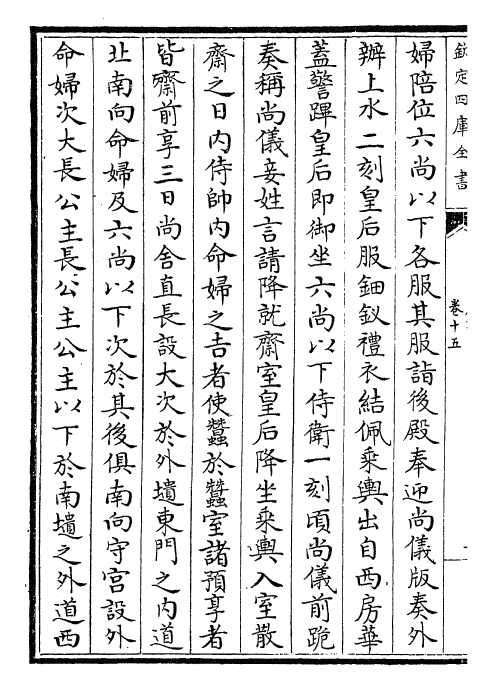 欽定四庫全書
卷十五
婦陪位六尚以下各服其服詣後殿奉迎尚儀版奏外
辦上水二刻皇后服鈿釵禮衣結佩乘輿出自西房華
蓋警蹕皇后即御坐六尚以下侍衛一刻頃尚儀前跪
奏稱尚儀妾姓言請降就齋室皇后降坐乘輿入室散
齋之日內侍帥內命婦之吉者使蠶於蠶室諸預享者
皆齋前享三日尚舍直長設大次於外壝東門之內道
北南向命婦及六尚以下次於其後俱南向守宮設外
命婦次大長公主長公主公主以下於南壝之外道西